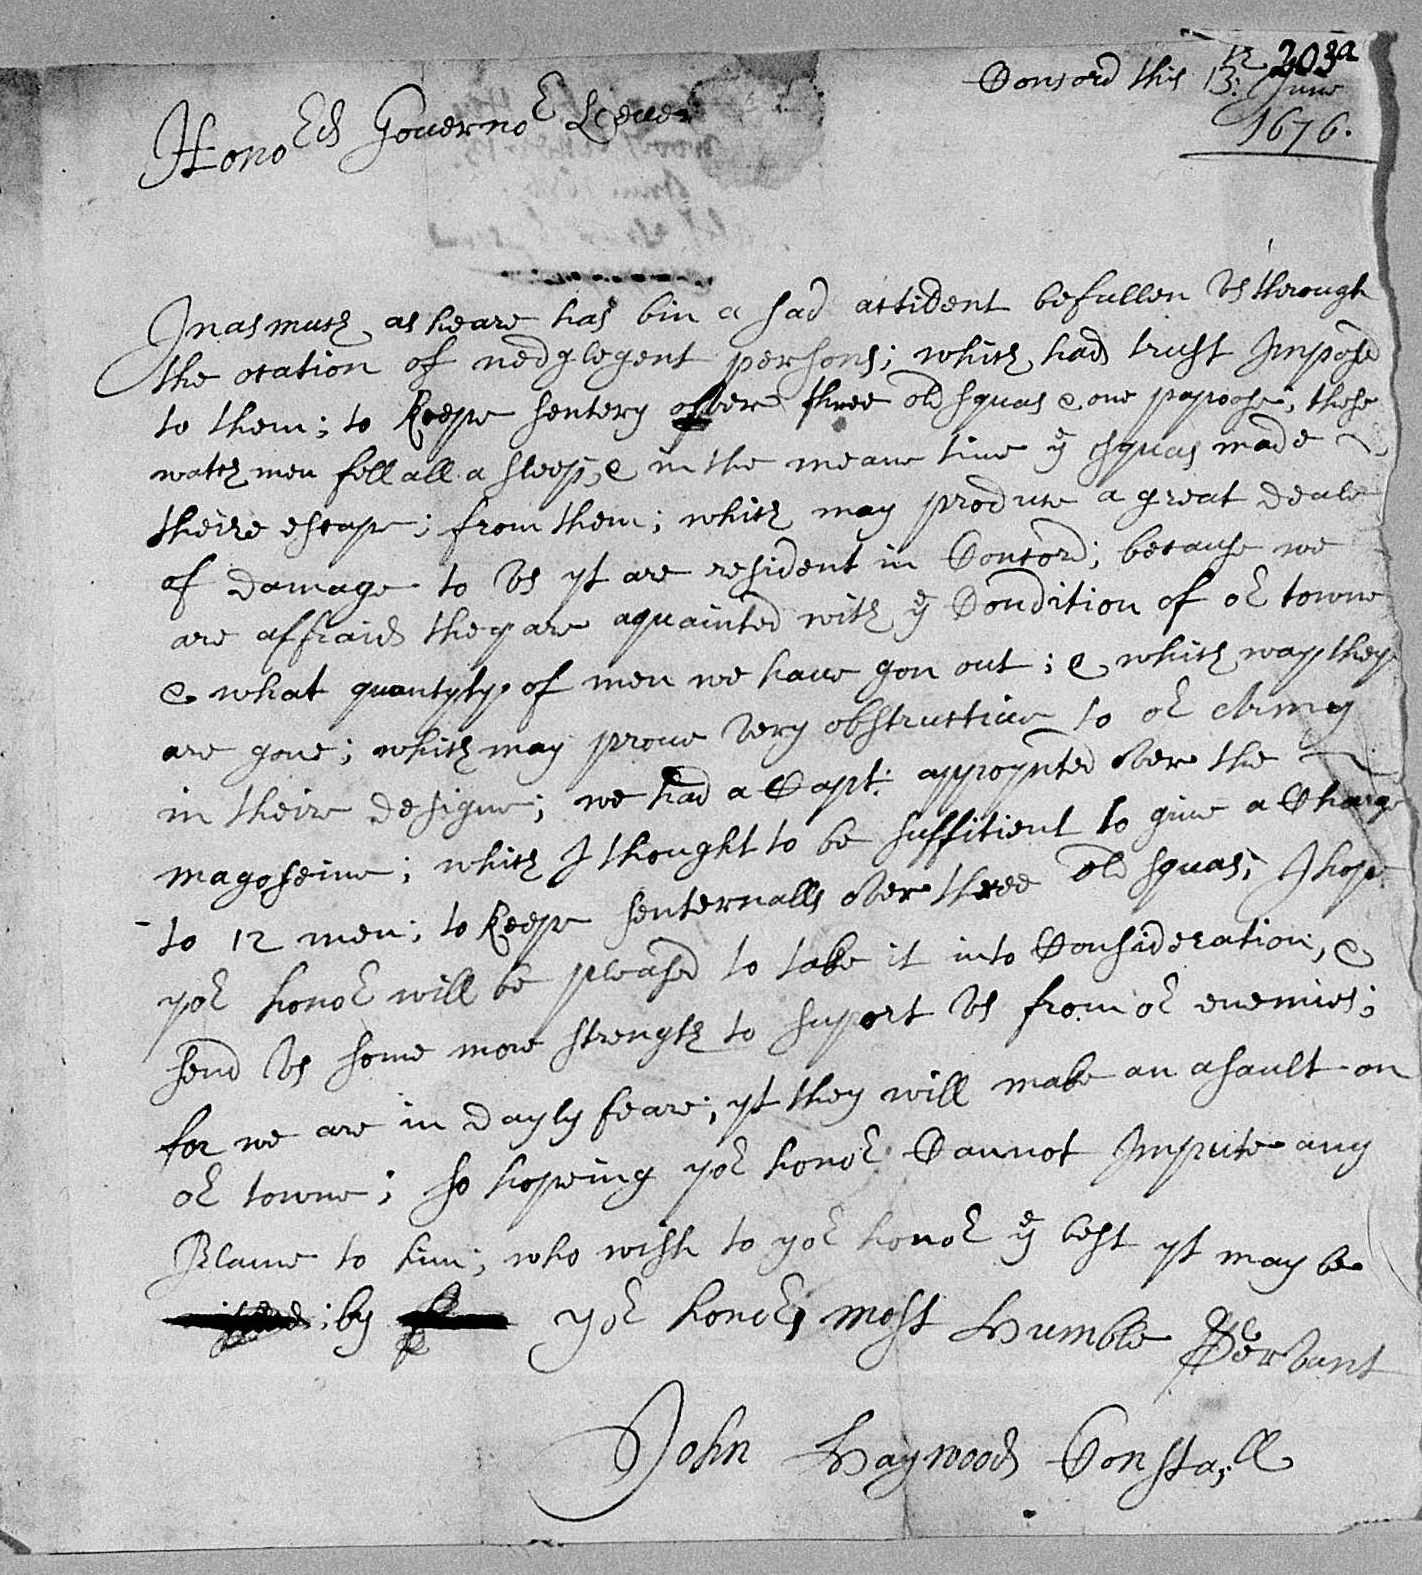 203a
Concord this 12
13: June
1676.
Honoed Gouernor Leuer
Inasmuch as heare has bin a sad accident befallen Vs through
the ocation of nedglegent persons; which had trust Imposd
to them; to keepe sentery ouer three old squas & one papoose; these
watch men fell all a sleep, & in the meane time ye squas made
theire escape; from them; which may produce a great deale
of damage to Vs yt are resident in Concord; because we
are affraid they are aquainted with ye Condition of or towne
& what quantyty of men we haue gon out; & which way they
are gone; which may proue Very obstructiue to or Army
in theire designe; we had a Capt: appoynted ouer the
magoseine; which I thought to be suffitient to giue a Charge
to 12 men; to keepe senternalls ouer three old squas; I hope
yor honor will be pleased to take it into Consideration; &
send Vs some more strength to suport Vs from or enemies;
for we are in dayly feare; yt they will make an asault on
or towne; so hopeing yor honor Cannot Impute any
Blame to him; who wish to yor honor ye best yt may be
; by yor honors most Humble Seruant
John Haywood Constall